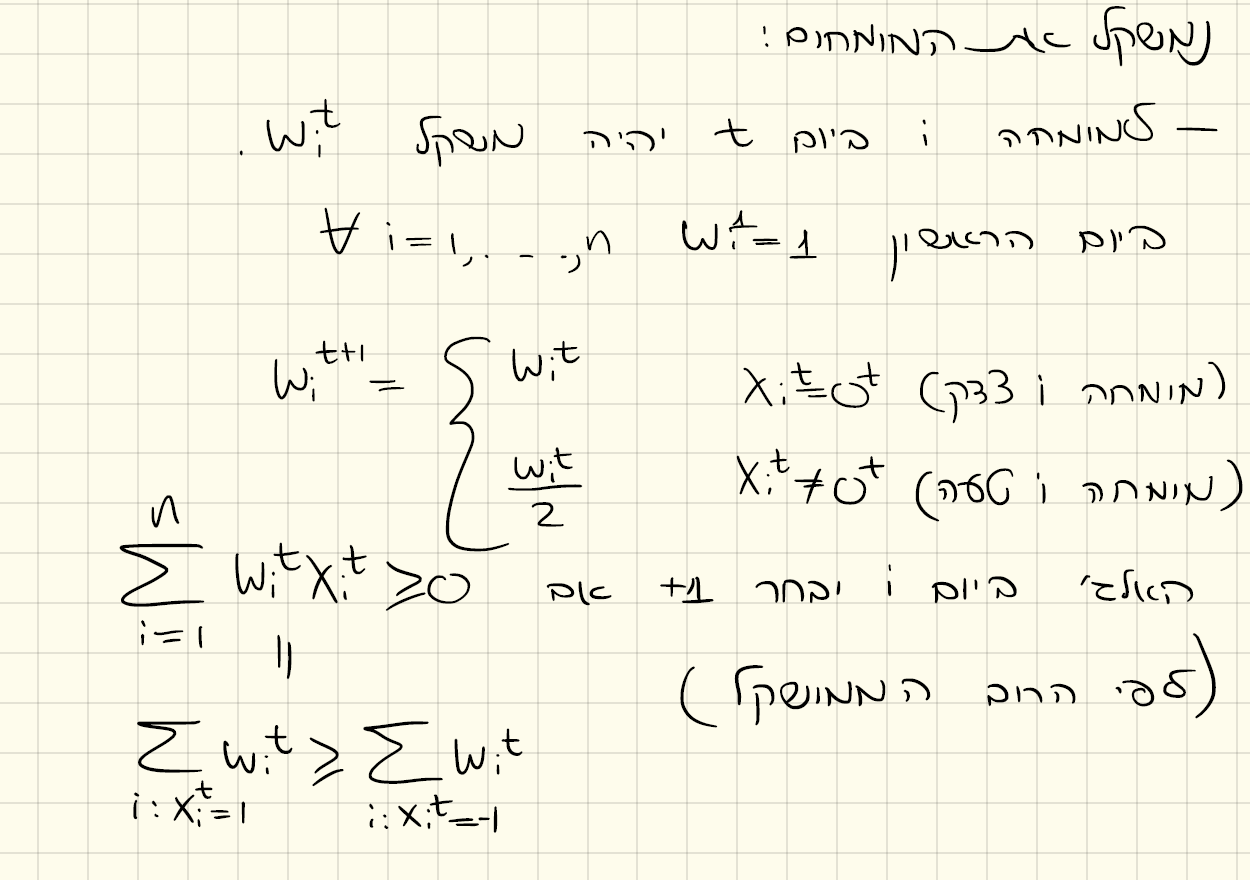 נמשקל את המומחים:
— למומחה i ביום t יהיה משקל w_i^t.
ביום הראשון w_i^1=1 ∀ i=1,...,n
w_i^{t+1} = { w_i^t x_i^t=0^t (מומחה i צדק)
w_i^t/2 x_i^t≠0^t (מומחה i טעה)
האלג' ביום i יבחר +1 אם \sum_{i=1}^{n} w_i^t x_i^t ≥0
(לפי הרוב הממושקל)
||
\sum_{i:x_i^t=1} w_i^t ≥ \sum_{i:x_i^t=-1} w_i^t